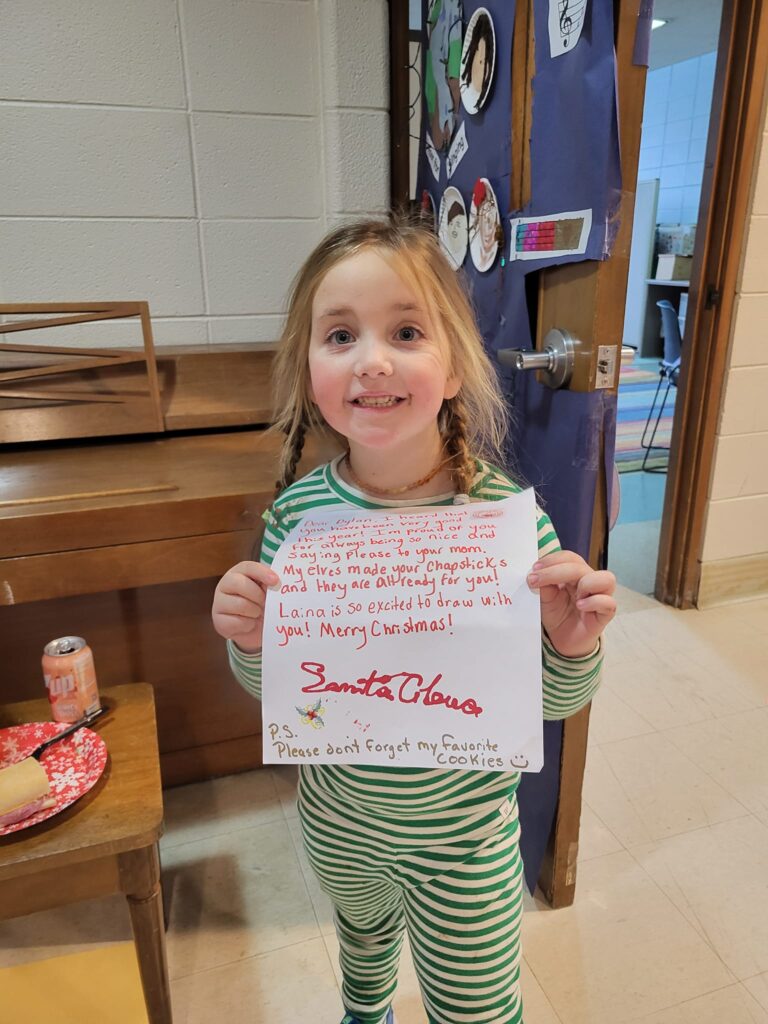 singing
Dear Dylan, I heard that
you have been very good
this year! I'm proud of you
for always being so nice and
saying please to your mom.
My elves made your Chapsticks
and they are all ready for you!
Laina is so excited to draw with
you! Merry Christmas!
Santa Claus
P.S.
Please don't forget my favorite
cookies
up